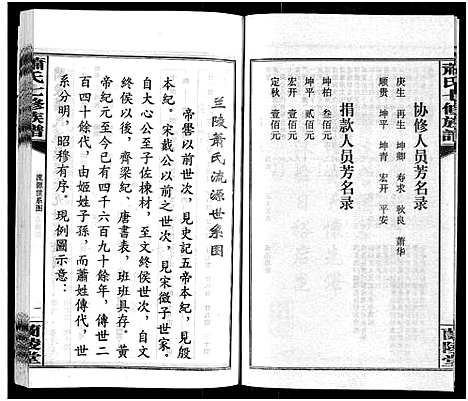 蕭氏七修族譜
協修人员芳名录
庚生 再生 坤卿 寿求 秋良 萧华
顺贵 坤平 坤青 宏开 平安
捐款人员芳名录
坤柏 叁佰元
坤平 贰佰元
宏开 壹佰元
定秋 壹佰元
蘭陵堂
兰陵萧氏流源世系图
帝嚳以前世次，見史記五帝本紀，見殷
本紀。宋戴公以前之世次，見宋微子世家。
自大心公至子佐棟材，至文終侯世次，自文
終侯以後，齊梁紀、唐書表，班班具存。黃
帝紀元至今已有四千六百九十餘年，傳世二
百四十餘代，由姬姓子孫，而蕭姓傳代，世
系分明，昭穆有序。現例圖示意：
蕭氏七修族譜
流源世系图
一
蘭陵堂